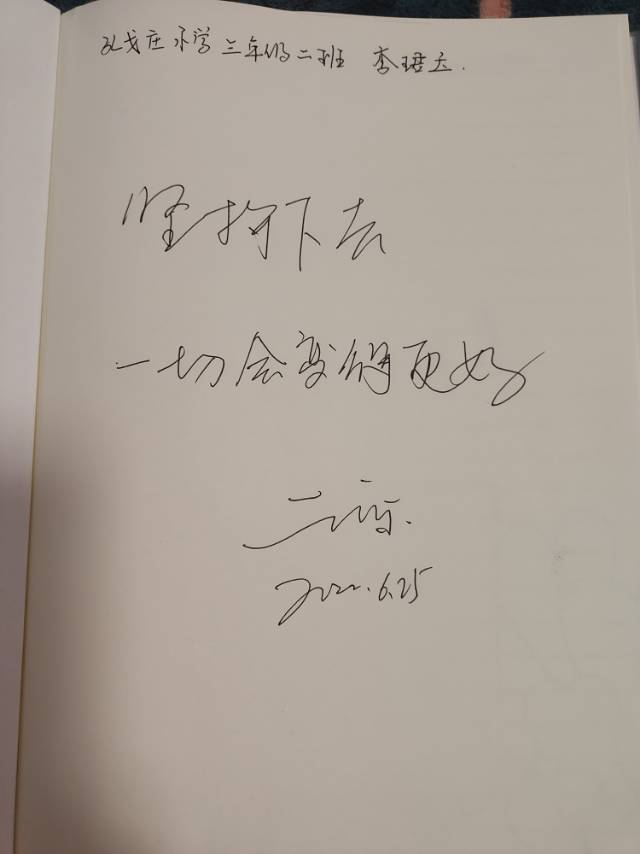 孔戈庄小学三年级二班 李珺
坚持下去
一切会变得更好
2022.6.25